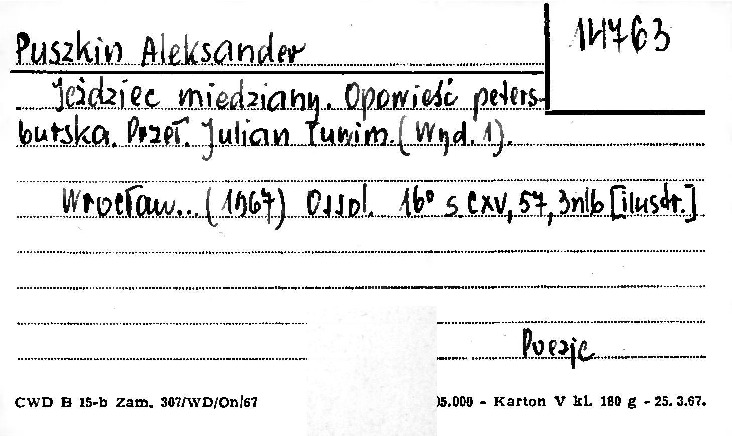 Puszkin Aleksander
14763
Jeździec miedziany. Opowieść peters-
burska. Przeł. Julian Tuwim. (Wyd. 1).
Wrocław... (1967) Ossol. 16° s CXV, 57, 3nlb [ilustr.]
Poezje
CWD B 15-b Zam. 307/WD/On/67
05.000 - Karton V kl. 180 g - 25. 3. 67.